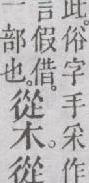 此。俗字手采作
言假借。
一部也。從木。從